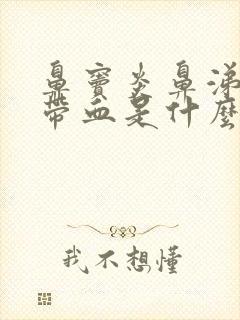 鼻窦炎鼻涕
带血是什麼
我不想懂